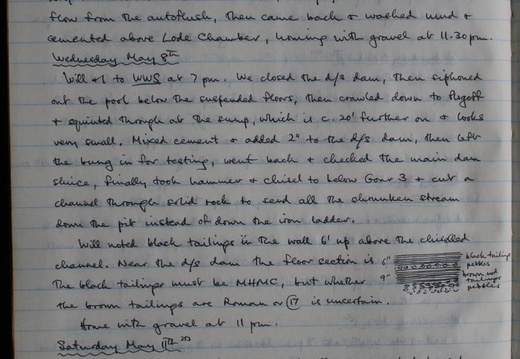 flow from the autoflush, then came back & washed mud &
cemented above Lode Chamber, homing with gravel at 11.30pm.
Wednesday May 8th
Will & I to WWS at 7 pm. We closed the d/s dam, then siphoned
out the pool below the suspended floors, then crawled down to
& squinted through at the sump, which is c. 20' further on & looks
very small. Mixed cement & added 2" to the d/s dam, then left
the bung in for testing, went back & checked the main dam
sluice, finally took hammer & chisel to below Gour 3 & cut a
channel through solid rock to send all the shrunken stream
down the pit instead of down the iron ladder.
Will noted black tailings in the wall 6' up above the chiselled
channel. Near the d/s dam the floor section is
6"
black tailings
pebbles
The black tailings must be MHMC, but whether
9"
brown red
tailings
pebbles
the brown tailings are Roman or 17 is uncertain.
Home with gravel at 11 pm.
Saturday May 11th